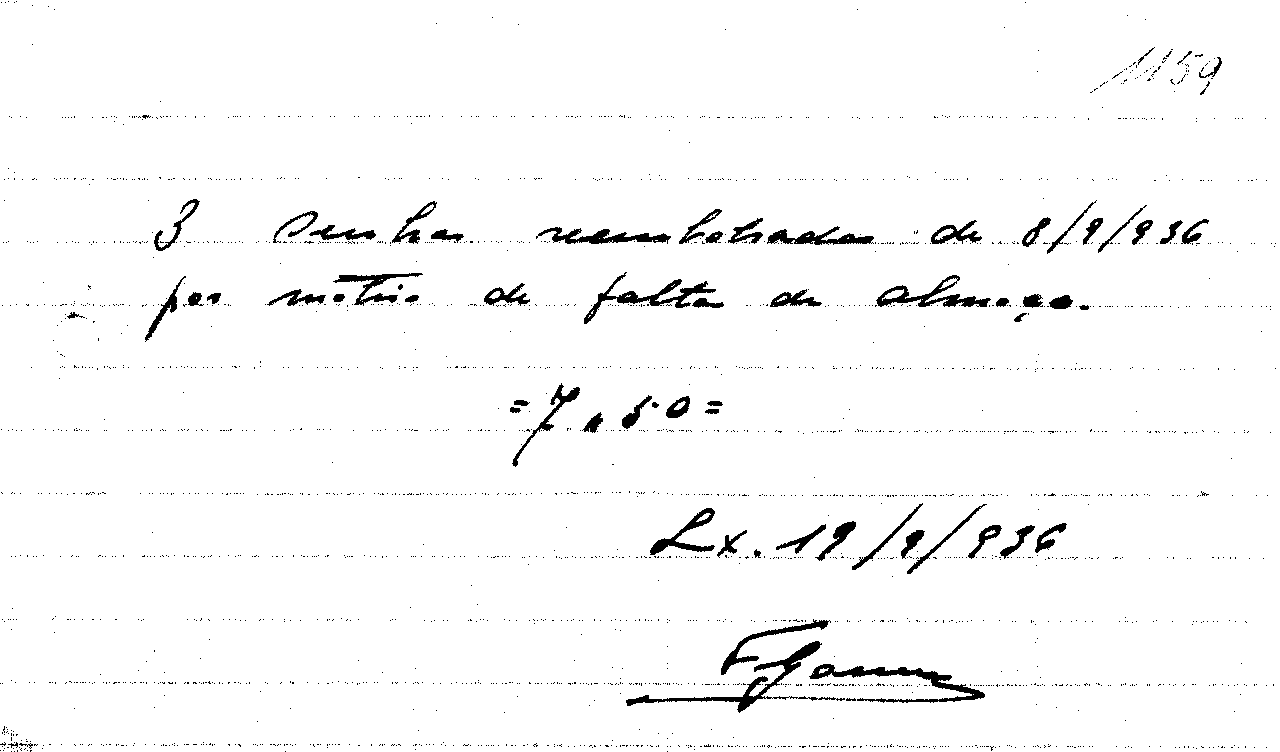 1159
3 senhas reembolsadas de 8/9/936
por motivo de falta de almoço.
=7,50=
Lx. 19/9/936